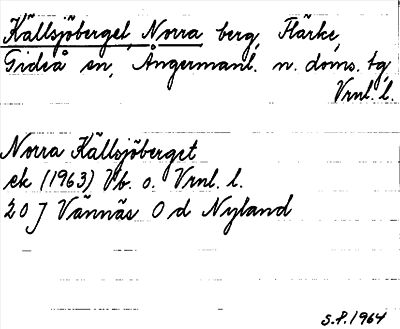 Källsjöberget, Norra berg, Flärke,
Gideå sn, Ångermanl. n. doms. tg,
Vrnl. l.
Norra Källsjöberget
ek (1963) Vb. o. Vrnl. l.
20 J Vännäs O d Nyland
S.P. 1964